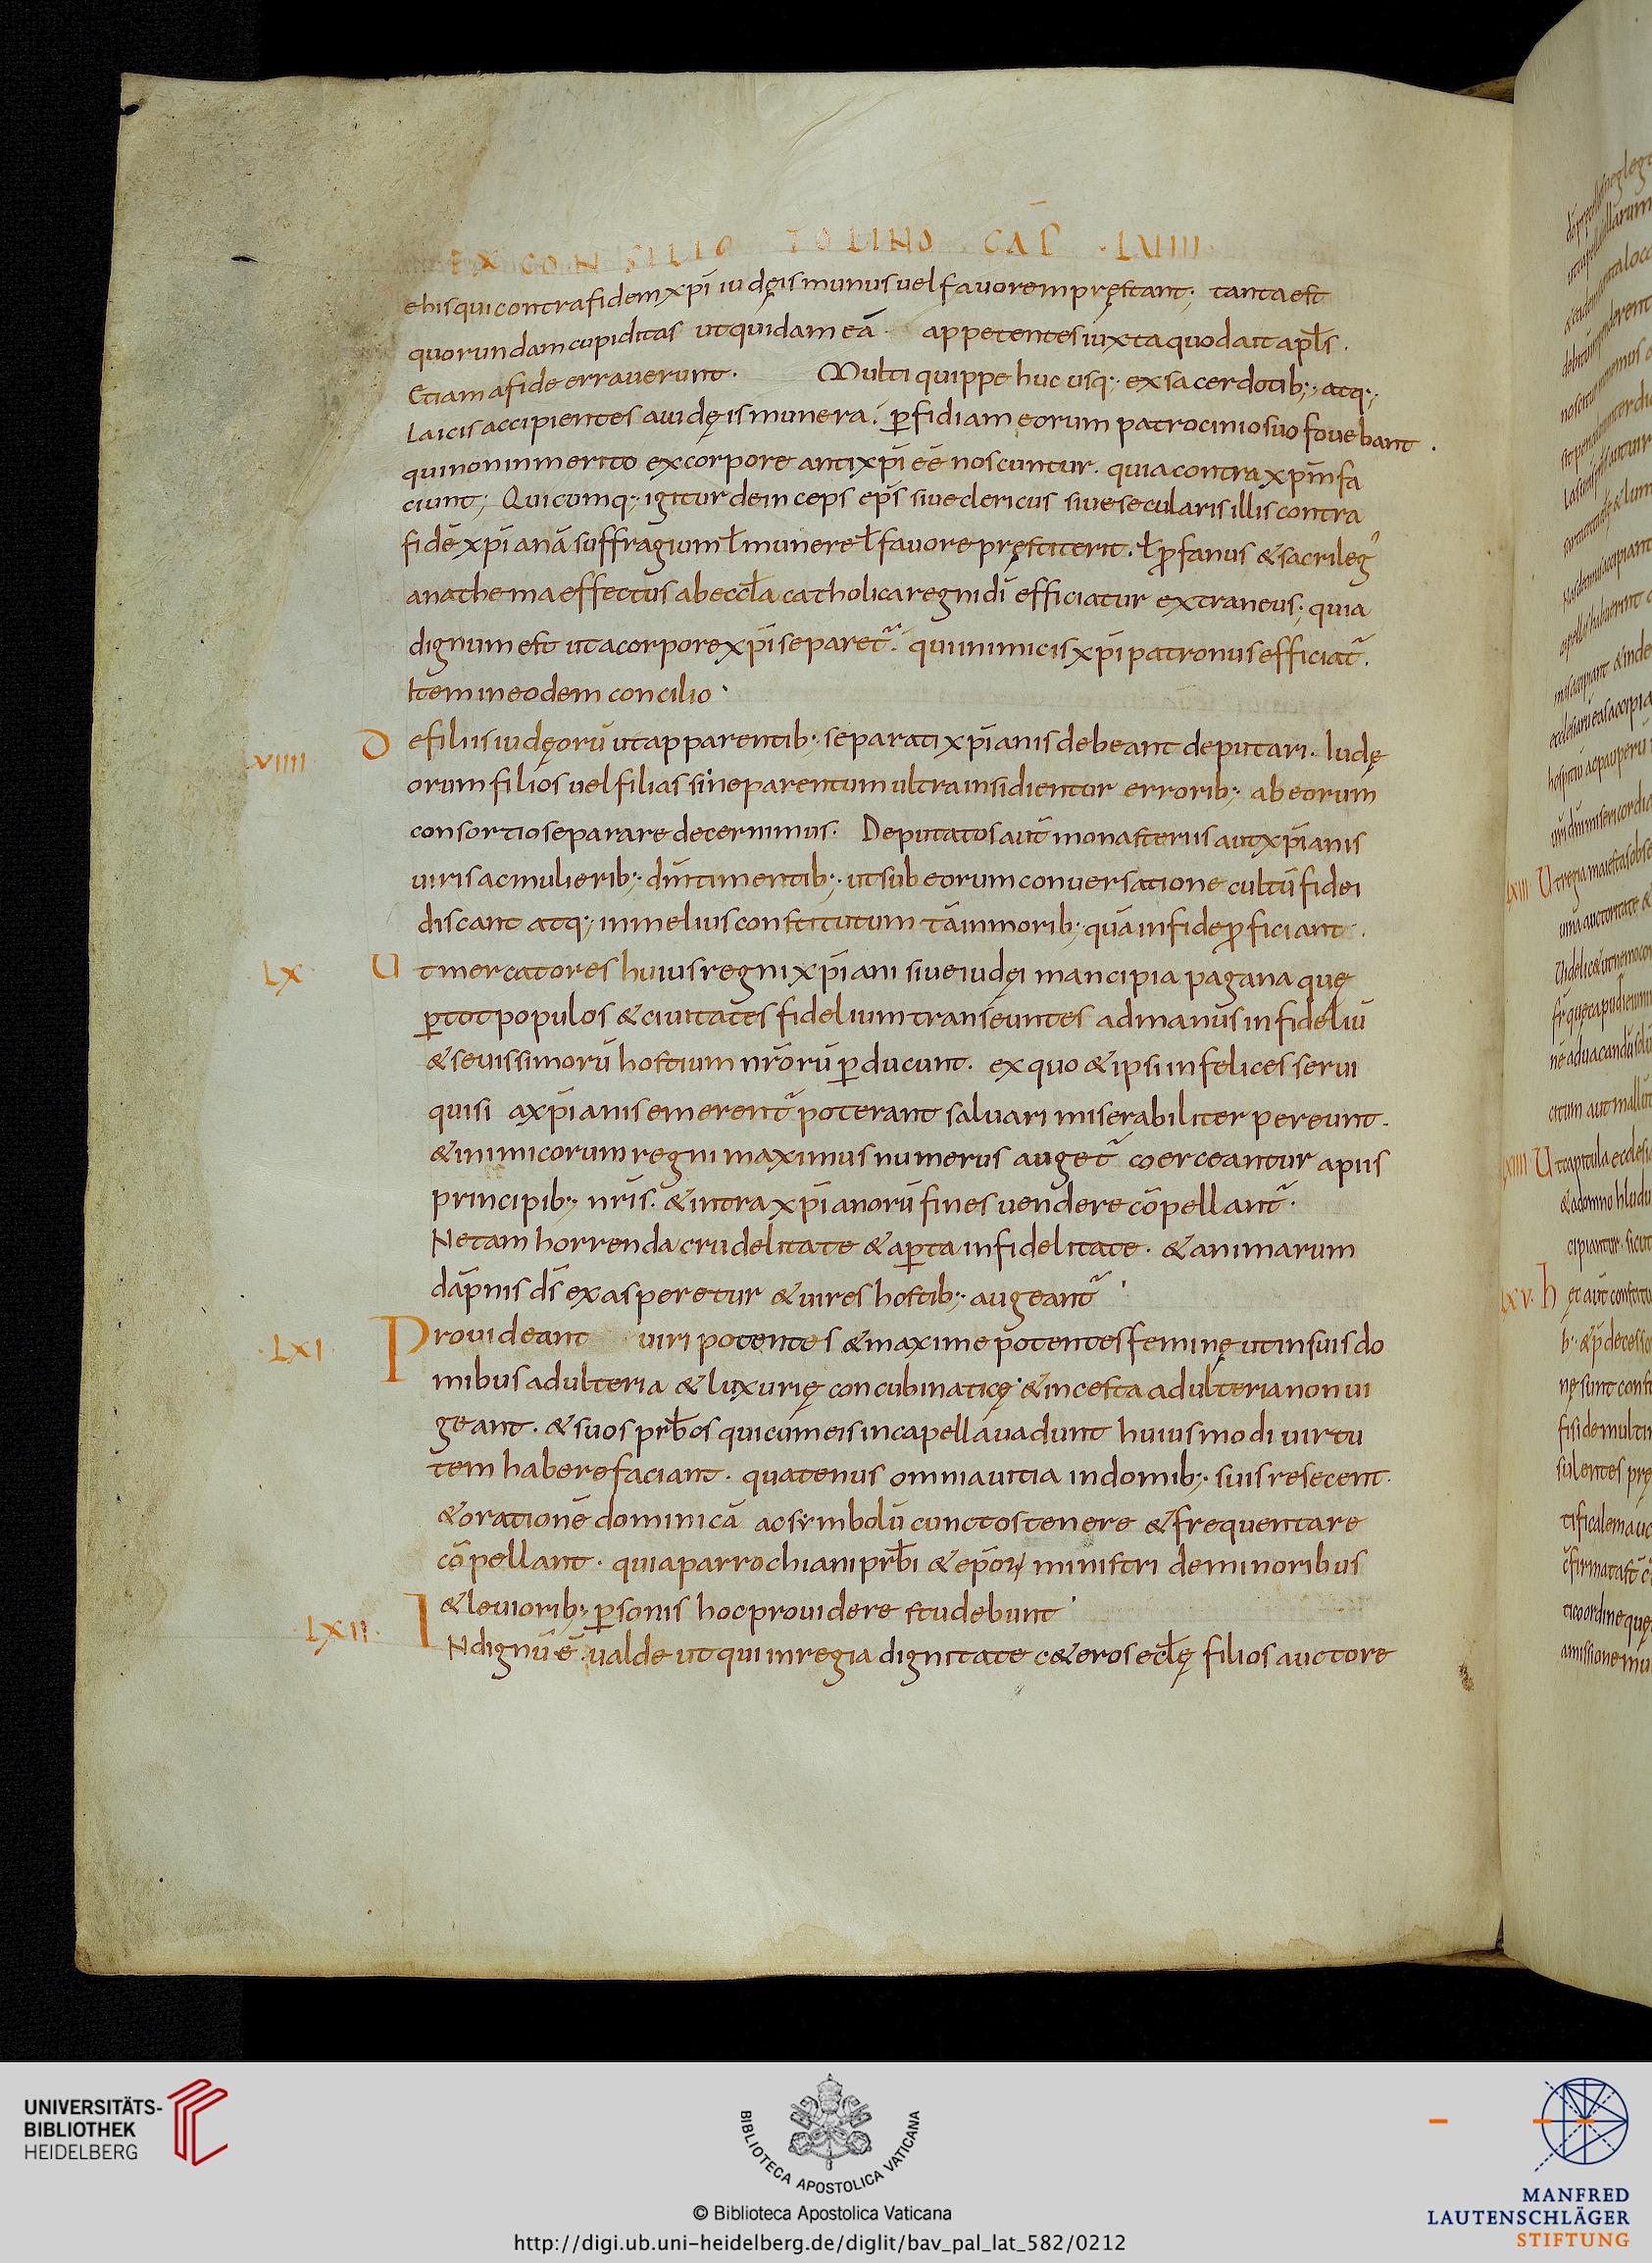 EX CONSILIO TOLINO CAP̄ · LVIIII ·
e his qui contra fidem xp̄i iudęis munus uel fauorem pręstant; tanta est
quorundam cupiditas ut quidam eā appetentes iuxta quod ait apłs .
Etiam a fide errauerunt . Multi quippe huc usq; ex sacerdotib; atq;
Laicis accipientes a iudęis munera . ꝑfidiam eorum patrocinio suo fouebant .
qui non inmerito ex corpore antixp̄i eē noscuntur . quia contra xp̄m fa
ciunt ; Quicumq; igitur dein ceps ep̄s siue clericus siue secularis illis contra
fidē xp̄ianā suffragium ł munere ł fauore pręstiterit . ł ꝓfanus & sacrileg᾽
anathema effectus ab eccła catholica regni dī efficiatur extraneus ; quia
dignum est ut a corpore xp̄i separet᷑ . qui inimicis xp̄i patronus efficiat᷑ .
Item in eodem concilio
VIIII D efiliis iudęorū ut apparentib; separati xp̄ianis debeant deputari . Iudę
orum filios uel filias sine parentum ultra insidientur errorib; ab eorum
consortio separare decernimus . Deputatos aut̄ monasteriis aut xp̄ianis
uiris ac mulierib; dm̄ timentib; ut sub eorum conuersatione cultū fidei
discant atq; in melius constitutum tā in morib; quā in fide ꝓficiant .
LX U t mercatores huius regni xp̄iani siue iudęi mancipia pagana quę
ꝑ tot populos & ciuitates fidelium transeuntes ad manus infideliū
& seuissimorū hostium nr̄orū ꝑducunt . ex quo & ipsi infelices serui
qui si a xp̄ianis emerent᷑ poterant saluari miserabiliter pereunt .
& inimicorum regni maximus numerus auget᷑ coerceantur a piis
principib; nr̄is . & intra xp̄ianorū fines uendere cōpellant᷑ .
Ne tam horrenda crudelitate & aꝑta infidelitate . & animarum
dāpnis dš exasperetur & uires hostib; augeant᷑
· LXI · Prouideant uiri potentes & maxime potentes feminę ut in suis do
mibus adulteria & luxurię concubinaticę & incesta adulteria non ui
geant . & suos prb̄os qui cum eis in capella uadunt huiusmodi uirtu
tem habere faciant . quatenus omnia uitia in domib; suis resecent .
& orationē dominicā ac symbolū cunctos tenere & frequentare
cōpellant . quia parrochiani prb̄i & ep̄oꝝ ministri de minoribus
& leuiorib; ꝑsonis hoc prouidere studebunt
· LXII · INdignū ē ualde ut qui in regia dignitate c&eros ecłę filios auctore
UNIVERSITÄTS-
BIBLIOTHEK
HEIDELBERG
BIBLIOTECA APOSTOLICA VATICANA
© Biblioteca Apostolica Vaticana
http://digi.ub.uni-heidelberg.de/diglit/bav_pal_lat_582/0212
MANFRED
LAUTENSCHLÄGER
STIFTUNG